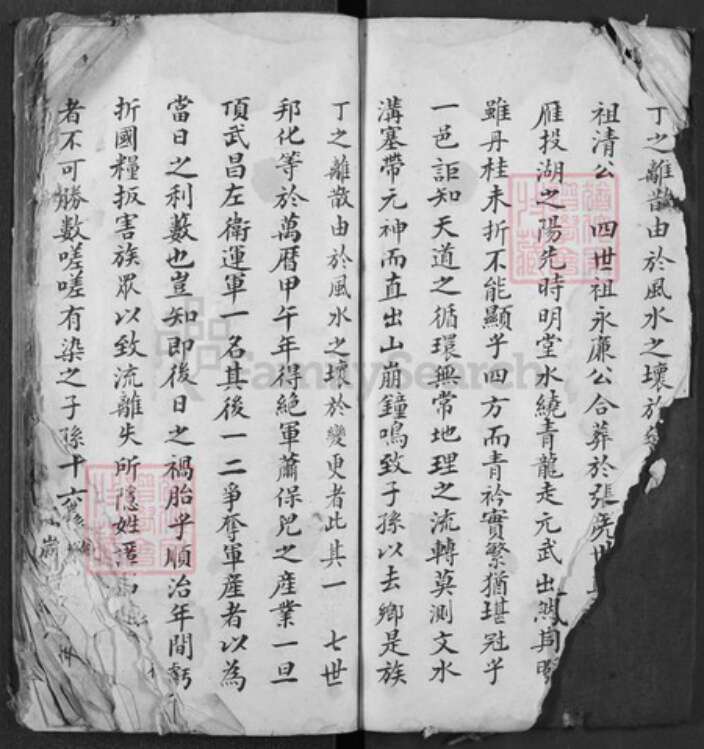 丁之離散由於風水之壞於
祖清公 四世祖永廉公合葬於張
雁投湖之陽先時明堂水繞青龍走元武出
雖丹桂未折不能顯乎四方而青衿實繁猶堪冠乎
一邑詎知天道之循環無常地理之流轉莫測文水
溝塞帶元神而直出山崩鐘鳴致子孫以去鄉是族
丁之離散由於風水之壞於變更者此其一 七世
邦化等於萬曆甲午年得絕軍蕭保兒之產業一旦
頂武昌左衛運軍一名其後一二爭奪軍產者以為
當日之利藪也豈知即後日之禍胎乎順治年間虧
折國糧扳害族眾以致流離失所隱姓
者不可勝數嗟嗟有染之子孫十六
FamilySearch